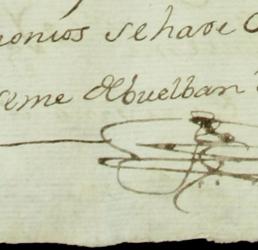 onios se hase
seme debuelban